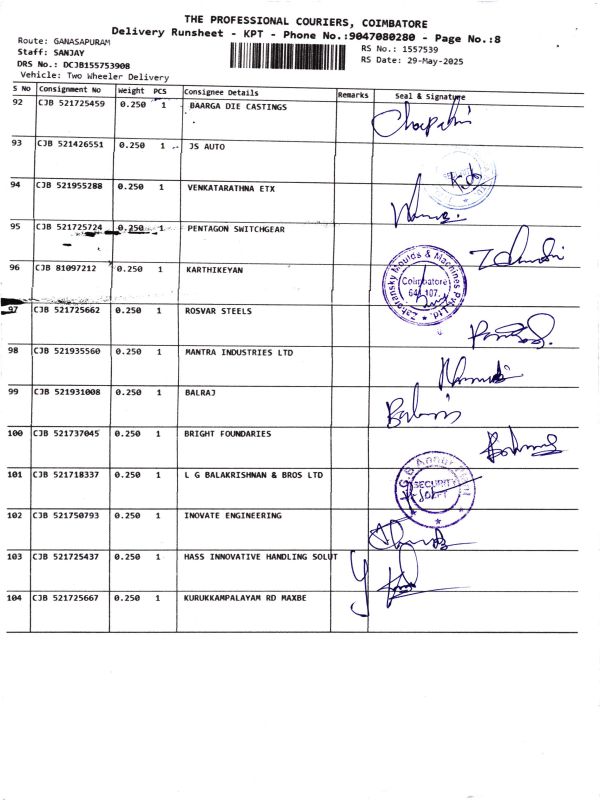 THE PROFESSIONAL COURIERS, COIMBATORE
Delivery Runsheet - KPT - Phone No.:9047080280 - Page No.:8
Route: GANASAPURAM
RS No.: 1557539
Staff: SANJAY
RS Date: 29-May-2025
DRS No.: DCJB155753908
Vehicle: Two Wheeler Delivery
S No Consignment No Weight PCS Consignee Details Remarks Seal & Signature
92 CJB 521725459 0.250 1 BAARGA DIE CASTINGS
93 CJB 521426551 0.250 1 JS AUTO
94 CJB 521955288 0.250 1 VENKATARATHNA ETX
95 CJB 521725724 0.250 1 PENTAGON SWITCHGEAR
96 CJB 81097212 0.250 1 KARTHIKEYAN
Zahoransky Moulds & Machines Pvt. Ltd.
Coimbatore
641 107.
97 CJB 521725662 0.250 1 ROSVAR STEELS
98 CJB 521935560 0.250 1 MANTRA INDUSTRIES LTD
99 CJB 521931008 0.250 1 BALRAJ
100 CJB 521737045 0.250 1 BRIGHT FOUNDARIES
101 CJB 521718337 0.250 1 L G BALAKRISHNAN & BROS LTD
SECURITY
102 CJB 521750793 0.250 1 INOVATE ENGINEERING
103 CJB 521725437 0.250 1 HASS INNOVATIVE HANDLING SOLUT
104 CJB 521725667 0.250 1 KURUKKAMPALAYAM RD MAXBE